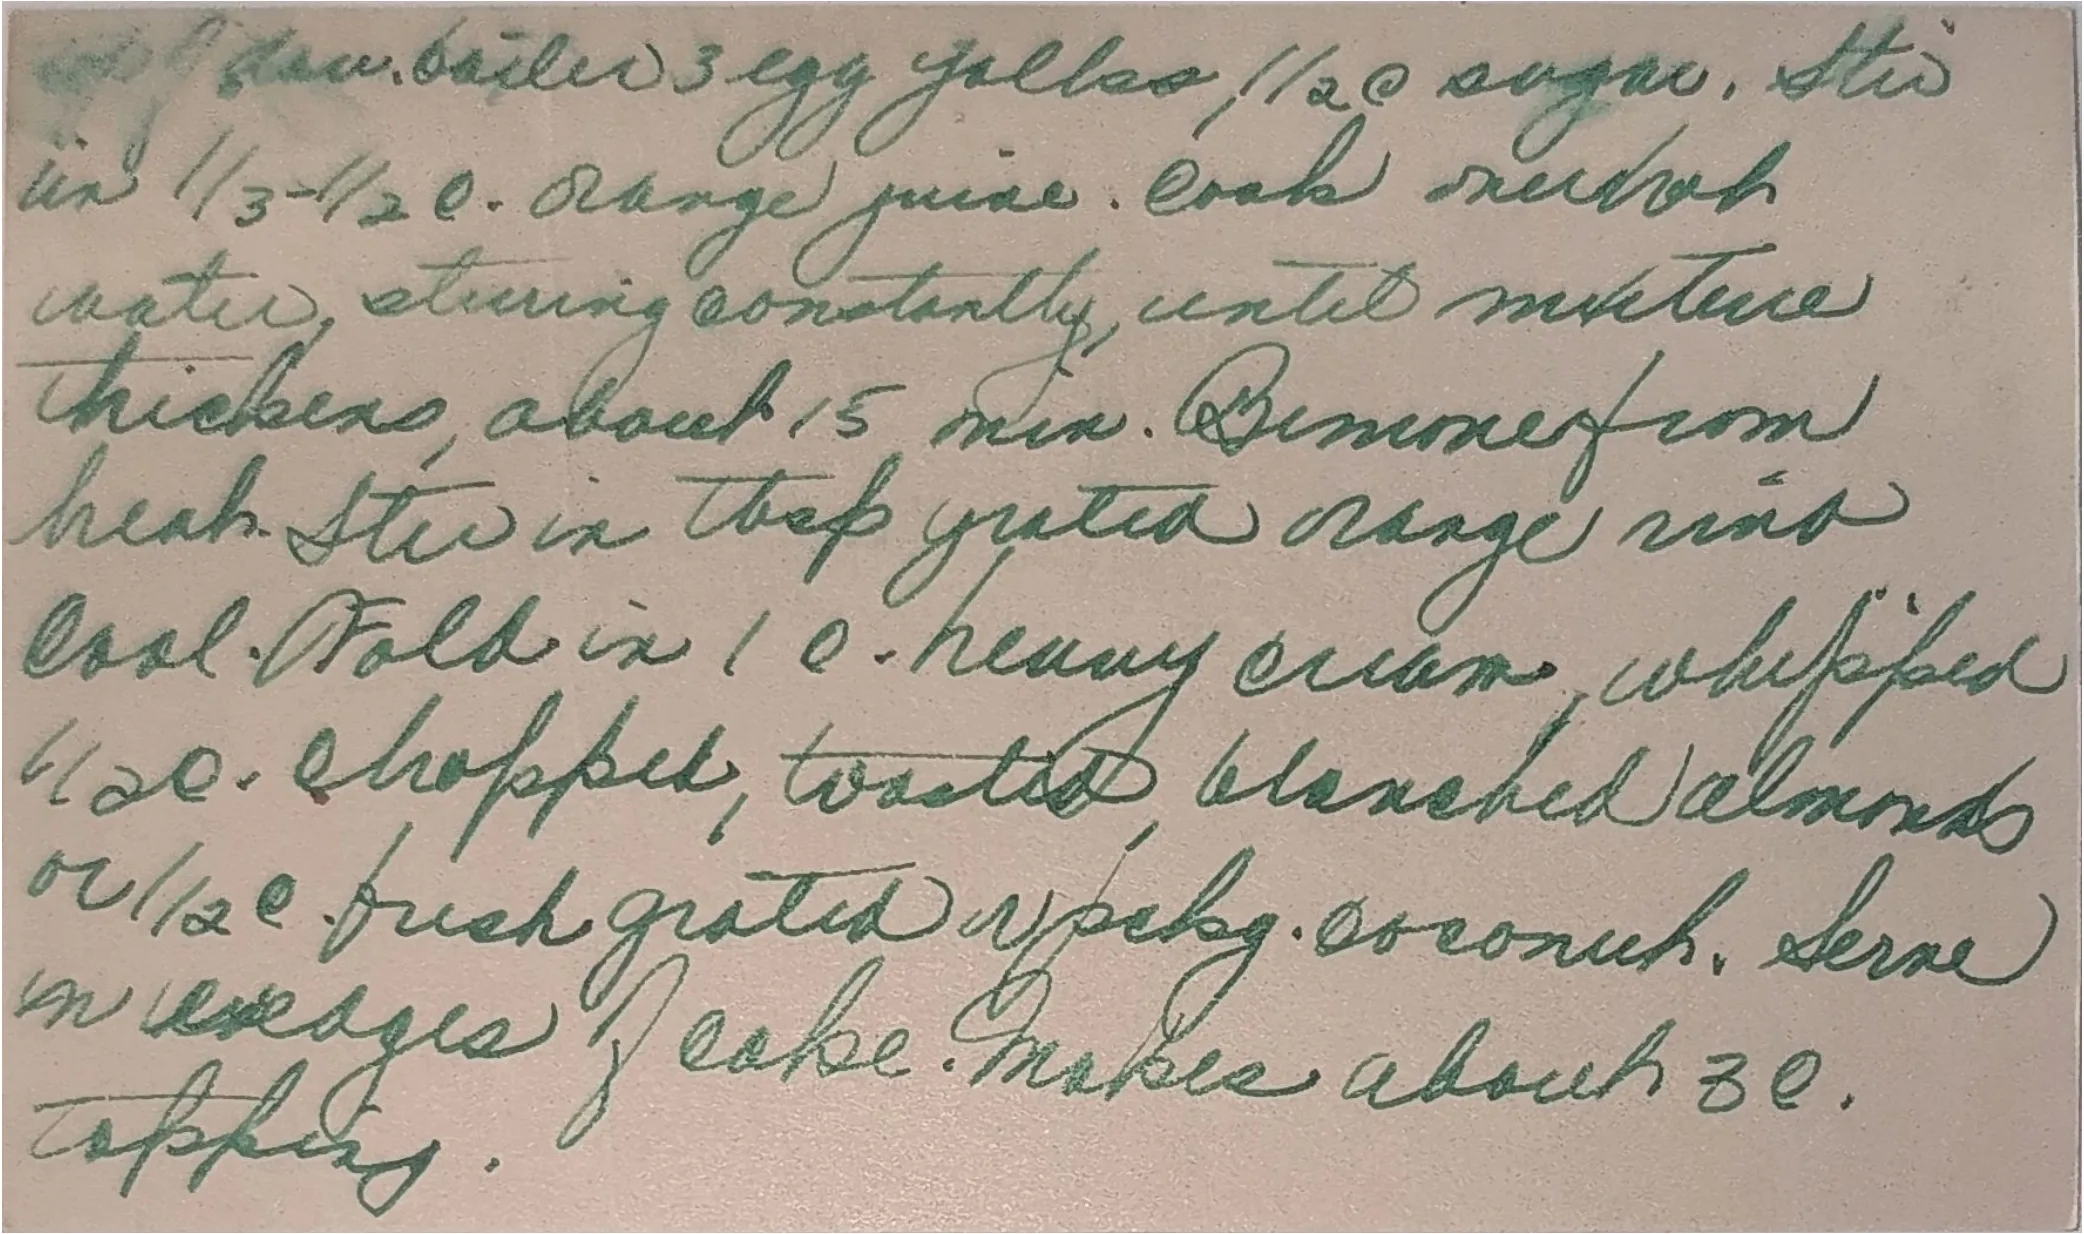 of dou. boiler 3 egg yolks, 1/2 c sugar. Stir
in 1/3-1/2 c. orange juice. Cook over hot
water, stirring constantly, until mixture
thickens, about 15 min. Remove from
heat. Stir in tbsp grated orange rind
Cool. Fold in 1 c. heavy cream, whipped
1/2 c. chopped, toasted, blanched almonds
or 1/2 c. fresh grated or pckg. coconut. Serve
on wedges of cake. Makes about 3 c.
topping.